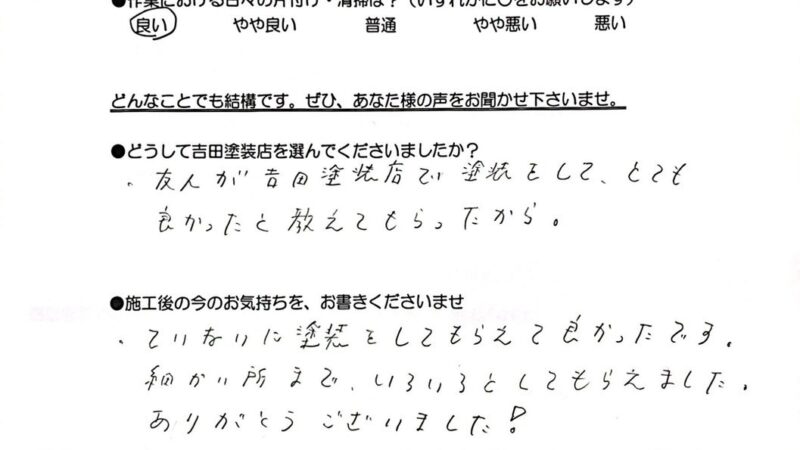 ●作業における日々の片付け・清掃は？(いずれかに○をお願いします)
良い やや良い 普通 やや悪い 悪い
どんなことでも結構です。ぜひ、あなた様の声をお聞かせ下さいませ。
●どうして吉田塗装店を選んでくださいましたか？
・友人が吉田塗装店で塗装をして、とても
良かったと教えてもらったから。
●施工後の今のお気持ちを、お書きくださいませ
・ていねいに塗装をしてもらえて良かったです。
細かい所まで、いろいろとしてもらえました。
ありがとうございました！